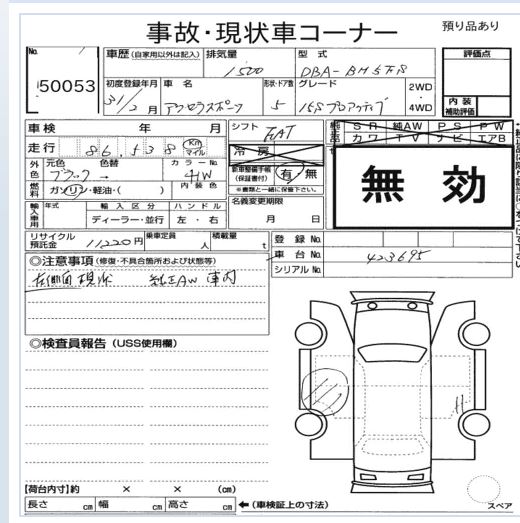 事故・現状車コーナー
預り品あり
No.
50053
車歴(自家用以外は記入)
排気量
1500
型式
DBA-BM5FS
評価点
初度登録年月
31/2月
車名
アクセラスポーツ
形状・ドア数
5
グレード
15Sプロアクティブ
2WD
4WD
内装
補助評価
車検 年 月
シフト FAT
SR 純AW PS PW
カワ TV ナビ エアB
走行 86,538 Km マイル
冷房
新車整備手帳
(保証書付)
有・無
※書類と一緒に保管下さい。
無効
外色
元色
ブラック→
色替
カラーNo.
41W
燃料
ガソリン・軽油・( )
内装色
名義変更期限
月 日
輸入車用
年式
輸入区分
ディーラー・並行
ハンドル
左・右
リサイクル
預託金
11220円
乗車定員
人
積載量
t
登録No.
車台No.
423695
シリアルNo.
◎注意事項(修復・不具合箇所および状態等)
左側面現状 純正AW車内
◎検査員報告(USS使用欄)
【荷台内寸】約 × × (cm)
長さ cm 幅 cm 高さ cm
←(車検証上の寸法)
スペア